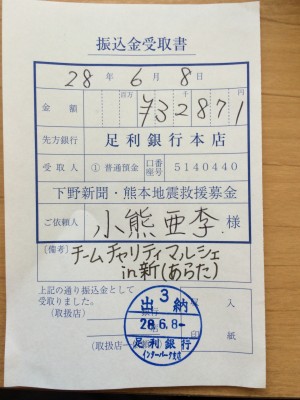 振込金受取書
28年 6月 8日
金額 百万 千 円 ¥732871
先方銀行 足利銀行本店
受取人 ① 普通預金 口座番号 5140440
下野新聞・熊本地震救援募金
ご依頼人 小熊亜李 様
〔備考〕 チームチャリティマルシェ
in新(あらた)
上記の通り振込金として
受取りました。
(取扱店) 銀行
(取扱店
収入
印紙
3
出納
28.6.8
足利銀行
インターパーク支店